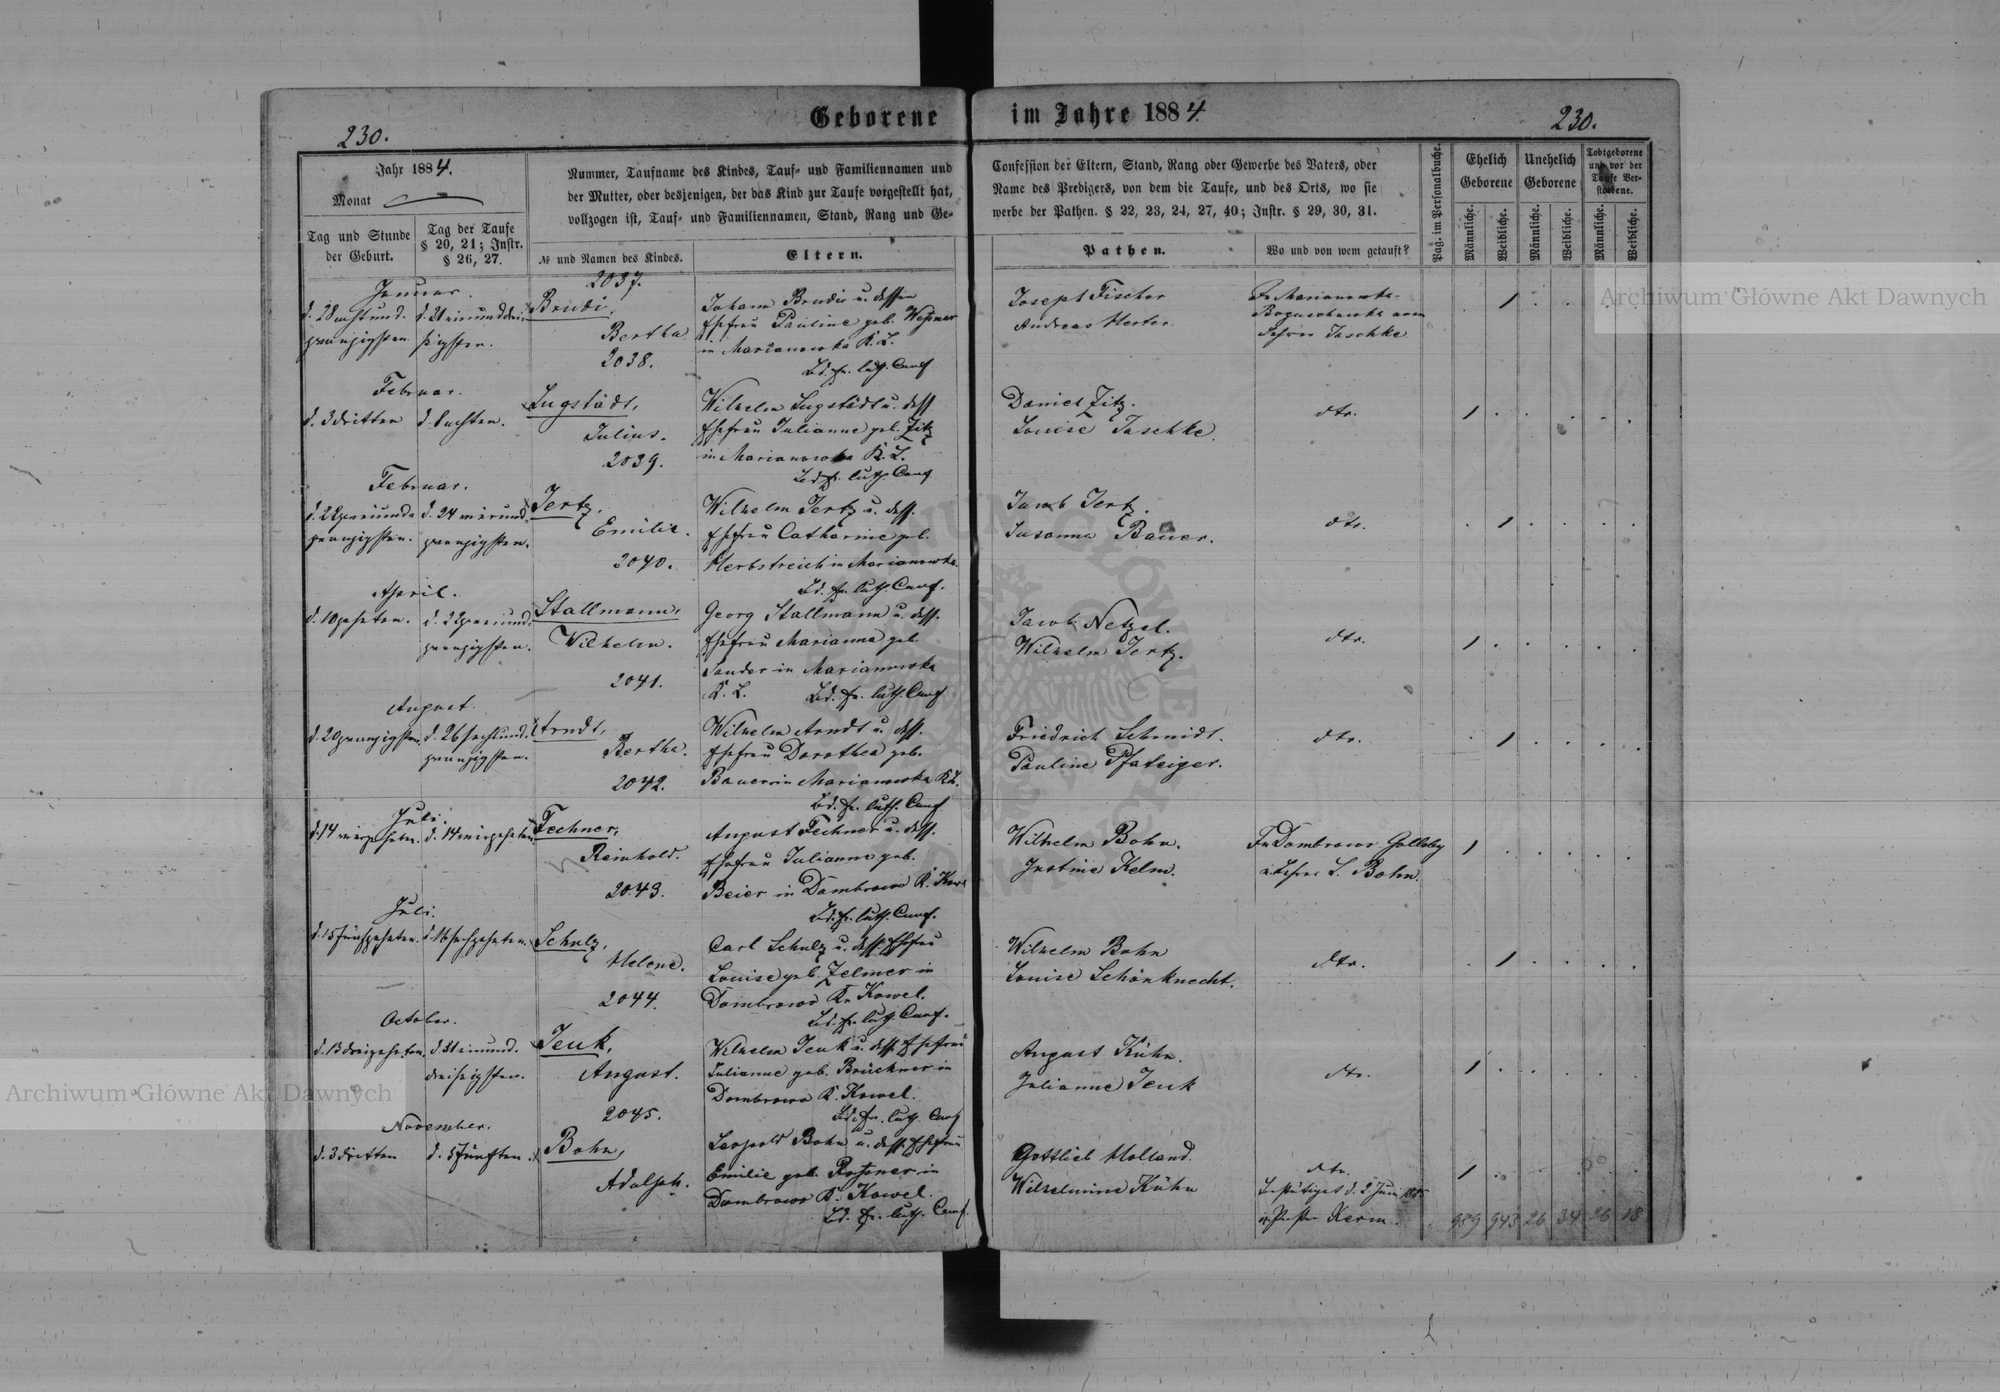 230.
Geborene im Jahre 1884.
230.
Jahr 1884.
Monat
Tag und Stunde der Geburt.
Tag der Taufe § 20, 21; Instr. § 26, 27.
Nummer, Taufname des Kindes, Tauf- und Familiennamen und
der Mutter, oder desjenigen, der das Kind zur Taufe vorgestellt hat,
vollzogen ist, Tauf- und Familiennamen, Stand, Rang und Ge-
№ und Namen des Kindes.
Eltern.
Confession der Eltern, Stand, Rang oder Gewerbe des Vaters, oder
Name des Predigers, von dem die Taufe, und des Orts, wo sie
werbe der Pathen. § 22, 23, 24, 27, 40; Instr. § 29, 30, 31.
Pathen.
Wo und von wem getauft?
Pag. im Personalbuche.
Ehelich Geborene
Unehelich Geborene
Todtgeborene und vor der Taufe Verstorbene.
Männliche.
Weibliche.
Männliche.
Weibliche.
Männliche.
Weibliche.
Januar.
2037.
Bertha
Johann
Ehefrau Pauline geb.
in Marianowka K. L.
Bd. ev. luth. Conf
Joseph Fischer
Andreas Herter
Jaschke
Februar.
d. 3 dritten
d. 8 achten.
2038.
Lugstädt,
Julius.
Wilhelm Lugstädt u. dess
Ehefrau Julianne geb. Zitz
in Marianowka K. L.
Bd. ev. luth. Conf
Daniel Zitz.
Louise Jaschke.
dto.
Februar.
d. 22 zweiund-
zwanzigsten.
d. 24 vierund-
zwanzigsten.
2039.
Emilie.
Wilhelm
u. dess.
Ehefrau Catharine geb.
Herbstreich in Marianowka
Bd. ev. luth. Conf.
Jacob
Susanna Bauer.
dto.
April.
d. 10 zehnten.
d. 22 zweiund-
zwanzigsten.
2040.
Stallmann,
Wilhelm.
Georg Stallmann u. dess.
Ehefrau Marianna geb.
Sander in Marianowka
K. L.
Bd. ev. luth. Conf
Jacob Netzel.
Wilhelm
dto.
August.
d. 20 zwanzigsten.
d. 26 sechsund-
zwanzigsten.
2041.
Arndt,
Bertha.
Wilhelm Arndt u. dess.
Ehefrau Dorothea geb.
Bauer in Marianowka K. L.
Bd. ev. luth. Conf
Friedrich Schmidt.
Pauline
dto.
Juli.
d. 14 vierzehnten.
d. 14 vierzehnten
2042.
Fechner,
Reinhold.
August Fechner u. dess.
Ehefrau Julianne geb.
Beier in Dombrowo K. Kow
Bd. ev. luth. Conf.
Wilhelm Bohn.
Justine Kelm.
In Dombrowo
L. Bohn.
Juli.
d. 15 fünfzehnten.
d. 16 sechzehnten.
2043.
Schulz,
Helene.
Carl Schulz u. dess. Ehefrau
Louise geb. Zelmer in
Dombrowo K. Kowel.
Bd. ev. luth. Conf.
Wilhelm Bohn
Louise Schönknecht.
dto.
October.
d. 13 dreizehnten.
d. 31 einund-
dreisigsten.
2044.
Jeuk,
August.
Wilhelm Jeuk u. dess. Ehefrau
Julianne geb. Brückner in
Dombrowo K. Kowel.
Bd. ev. luth. Conf
August Kühn.
Julianne Jeuk
dto.
November.
d. 3 dritten
d. 5 fünften.
2045.
Bohn,
Adolph.
Leopold Bohn u. dess. Ehefrau
Emilie geb. in
Dombrowo K. Kowel.
Bd. ev. luth. Conf
Gottlieb Holland.
Wilhelmine Kühn
dto.
989 943 26 34 26 18
Archiwum Główne Akt Dawnych
Archiwum Główne Akt Dawnych